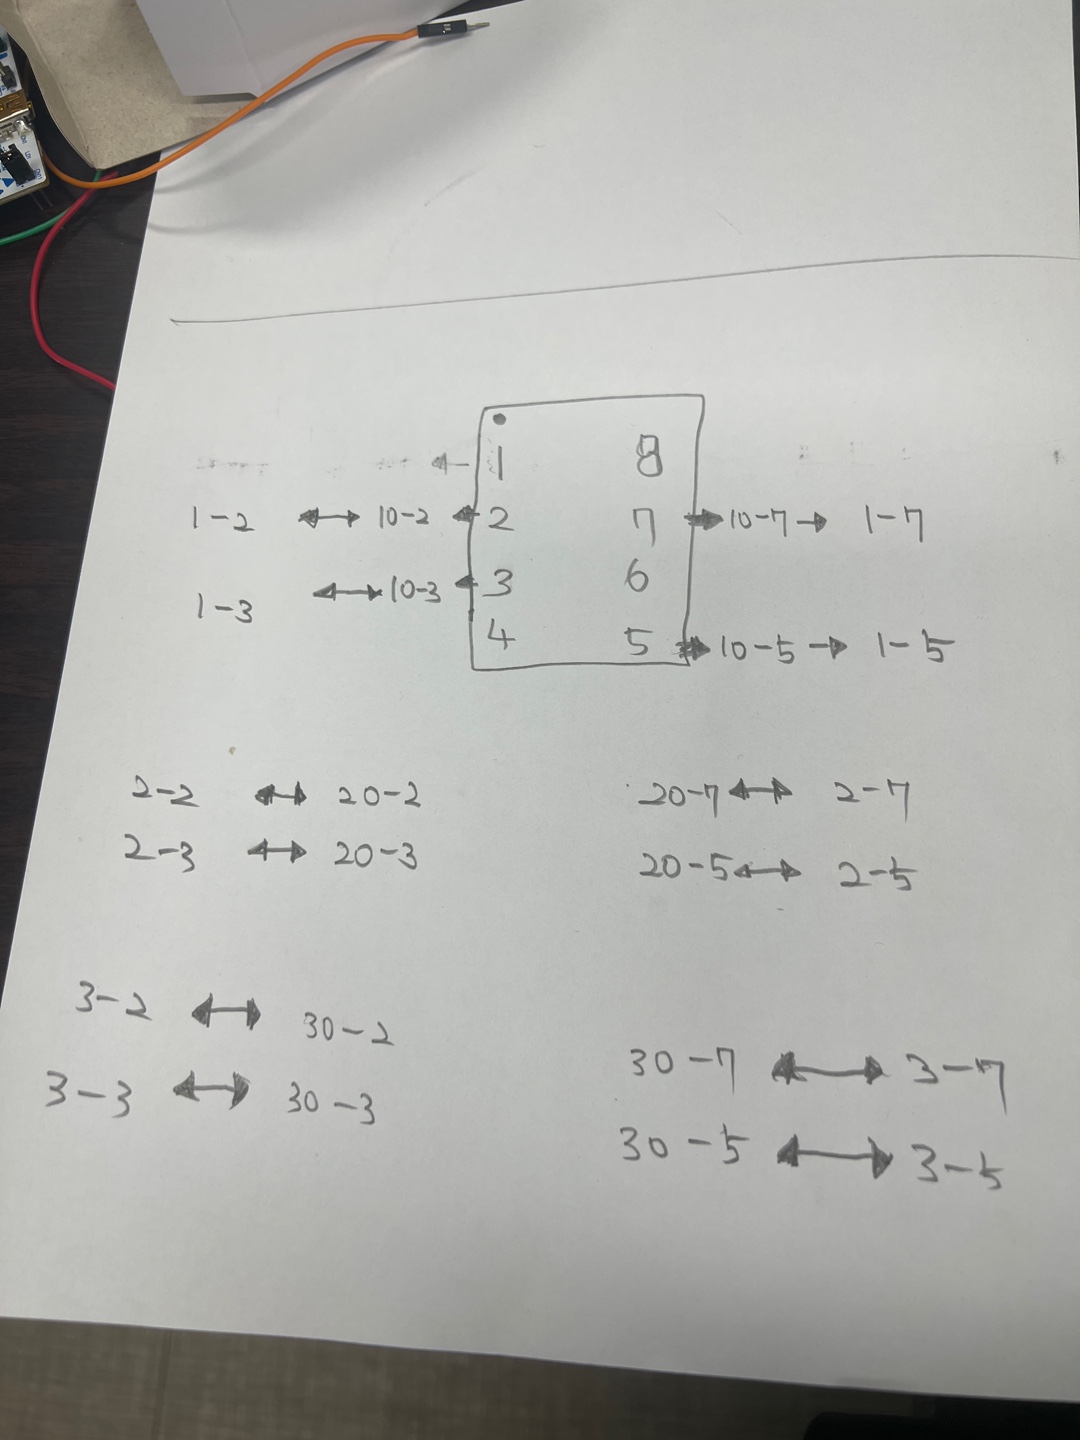 ← 1 8
1-2 ↔ 10-2 ← 2 7 → 10-7 → 1-7
1-3 ↔ 10-3 ← 3 6
4 5 → 10-5 → 1-5
2-2 ↔ 20-2 20-7 ↔ 2-7
2-3 ↔ 20-3 20-5 ↔ 2-5
3-2 ↔ 30-2
3-3 ↔ 30-3
30-7 ↔ 3-7
30-5 ↔ 3-5